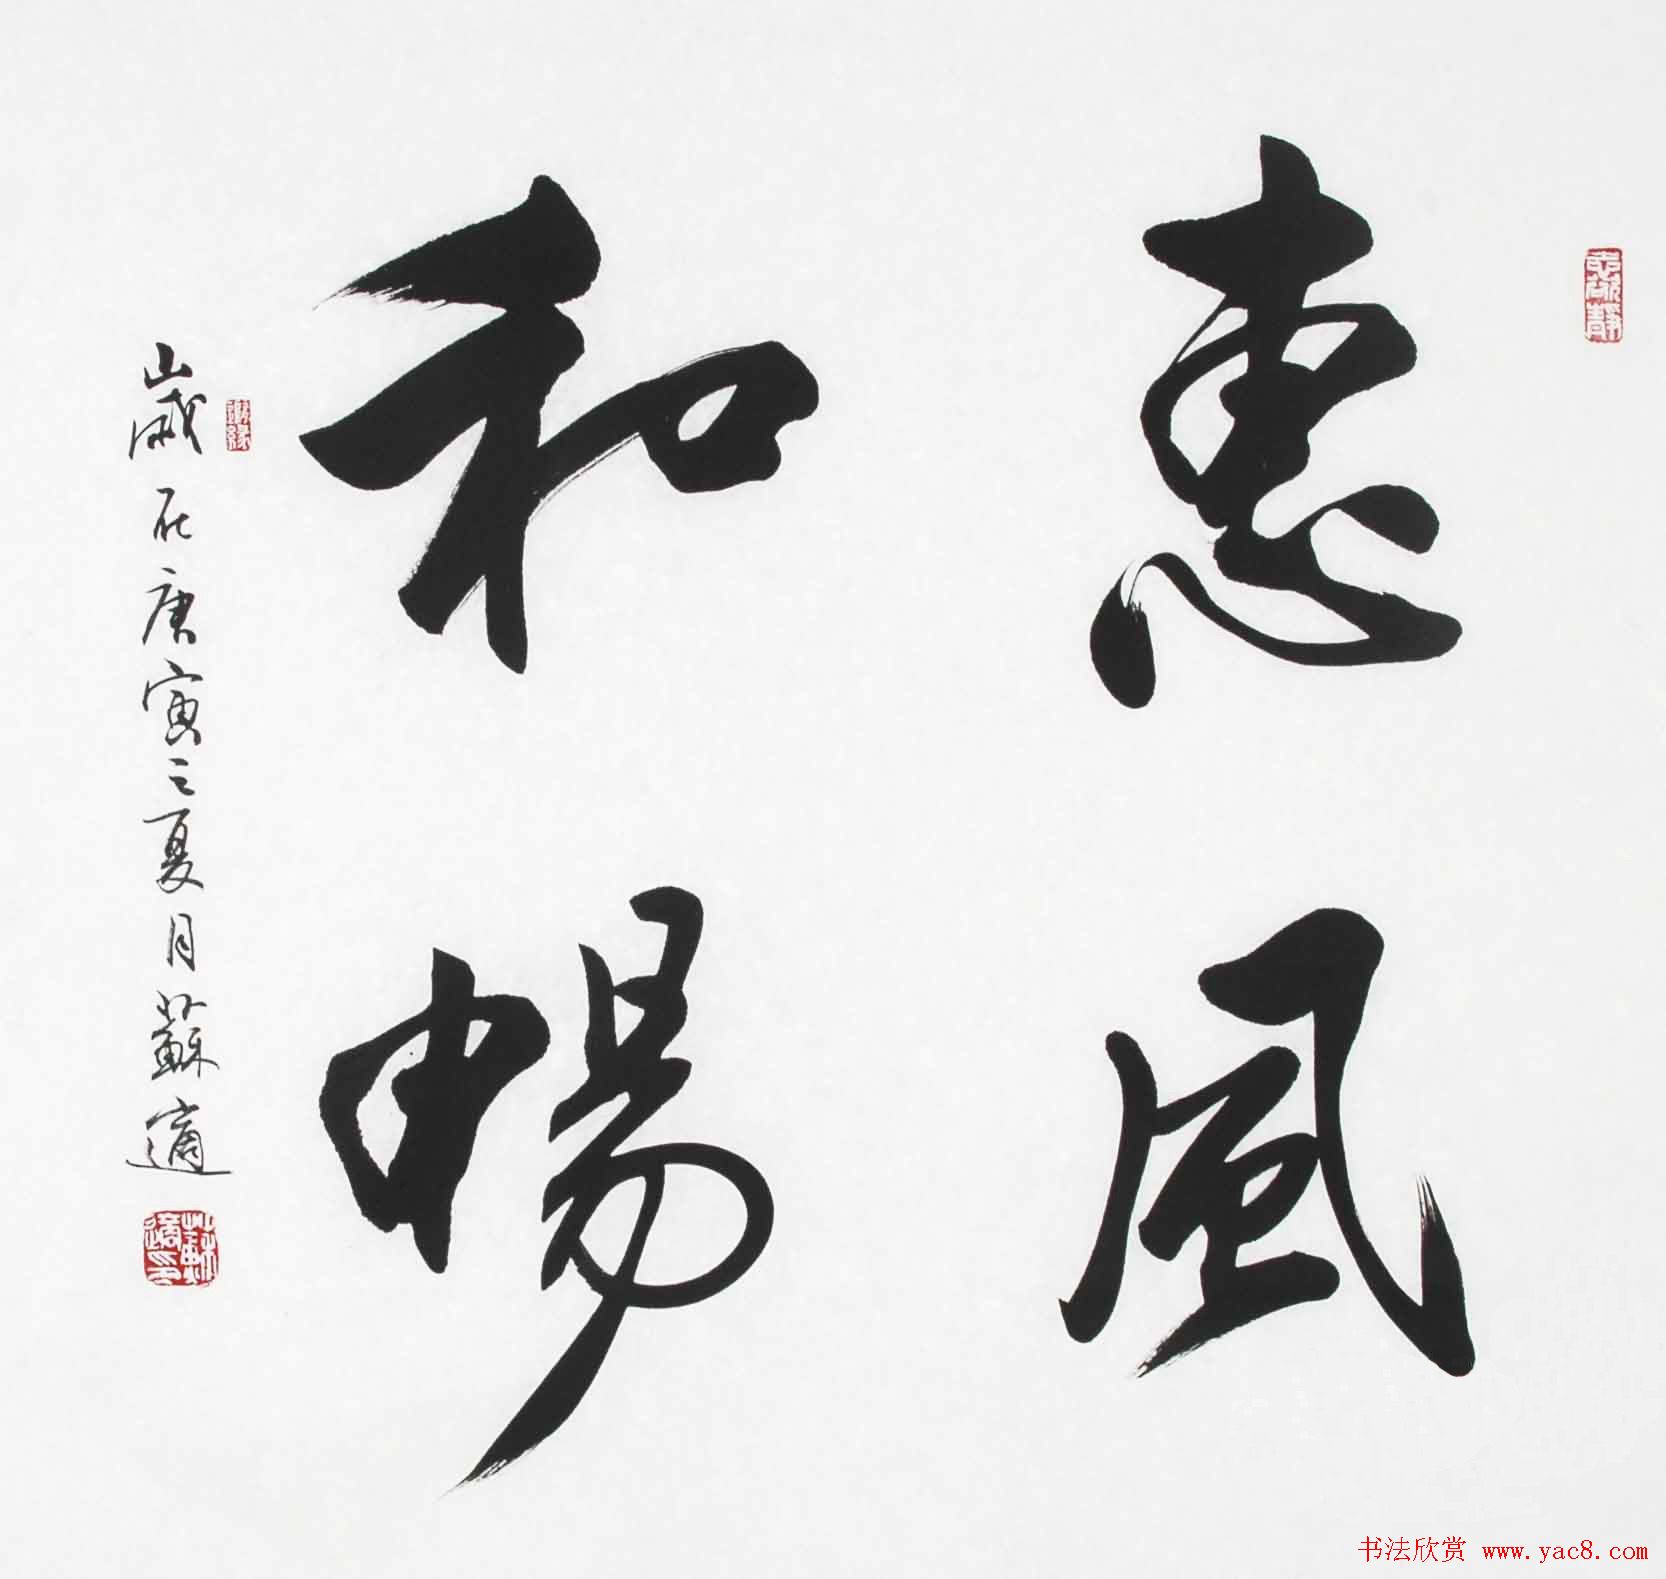 惠風
和暢
歲在庚寅之夏月蘇適
蘇適之印
书法欣赏 www.yac8.com